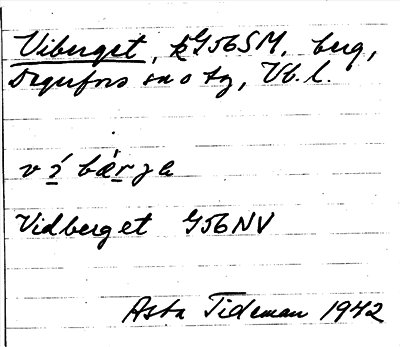 Viberget, kG56SM, berg,
Degerfors sn o tg, Vb. l.
ví bǽrʒa
Vidberget G56NV
Asta Tideman 1942